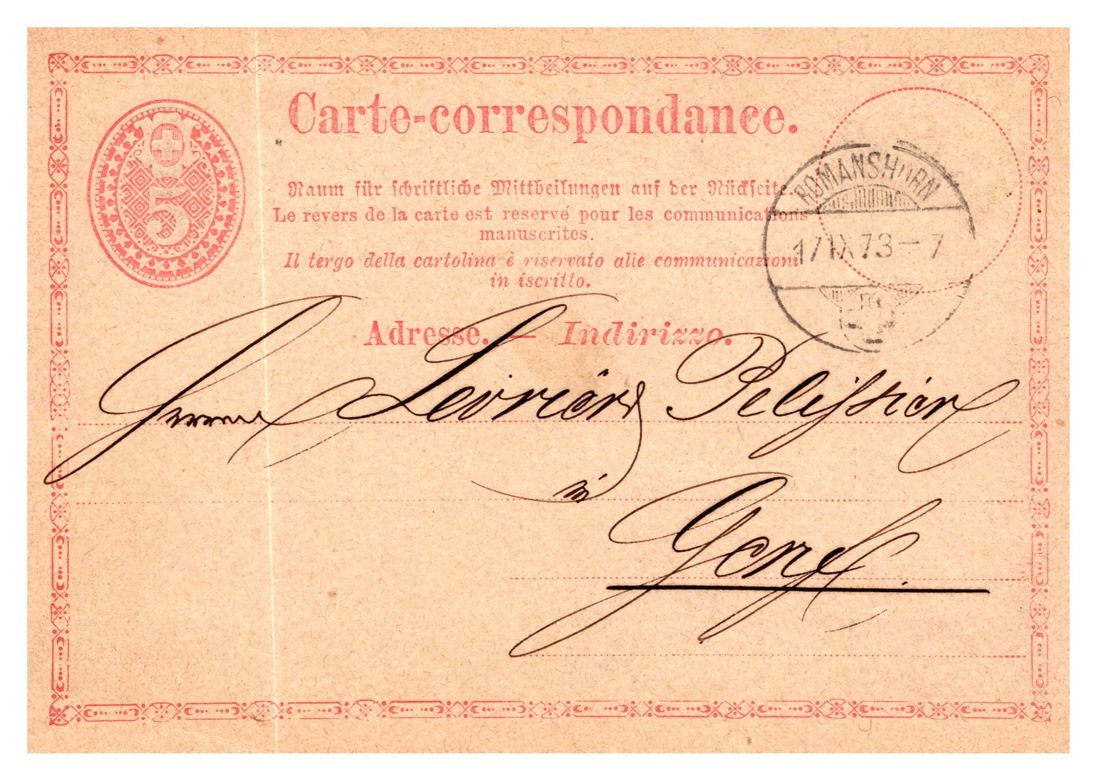 Carte-correspondance.
5
Raum für schriftliche Mittheilungen auf der Rückseite.
Le revers de la carte est reservé pour les communications
manuscrites.
Il tergo della cartolina è riservato alle communicazioni
in iscritto.
ROMANSHORN
17 IX 73 – 7
Adresse. — Indirizzo.
Herren Pelissier
in
Genf.